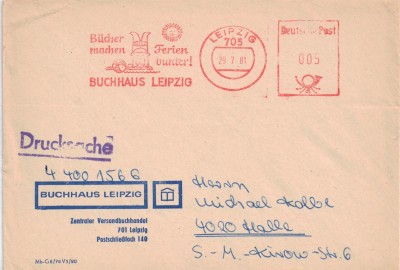 Bücher
machen Ferien
bunter!
BUCHHAUS LEIPZIG
LEIPZIG
705
29.7.81
Deutsche Post
005
Drucksache
4 400 156 6
BUCHHAUS LEIPZIG
Zentraler Versandbuchhandel
701 Leipzig
Postschließfach 140
Herrn
Michael Kolbe
4020 Halle
S.-M.-Kirow-Str. 6